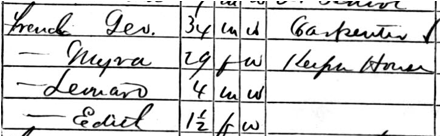 French Geo. 34 m w Carpenter
— Myra 29 f w Keepn House
— Leonard 4 m w
— Edith 1½ f w